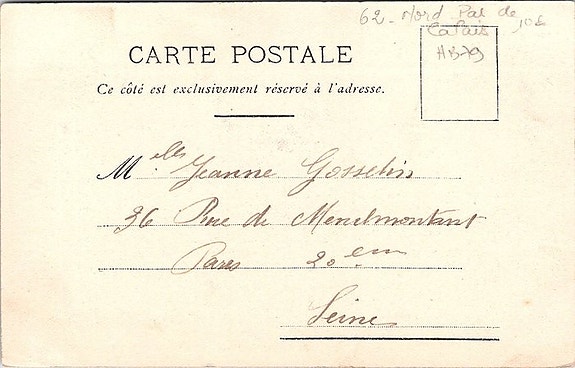 62 - Nord Pas de
Calais 10€
HB-79
CARTE POSTALE
Ce côté est exclusivement réservé à l'adresse.
Melles Jeanne Gosselin
36 Rue de Menilmontant
Paris 20em
Seine